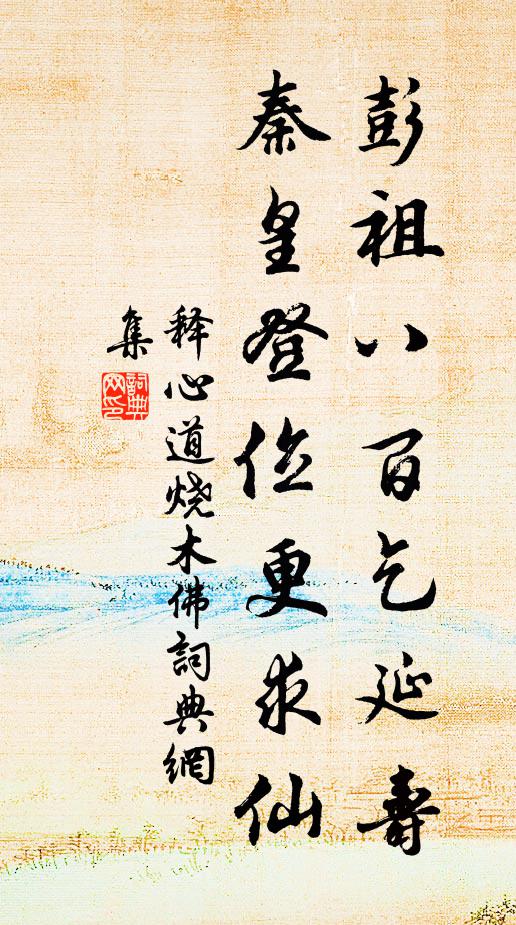 彭祖八百乞延壽
秦皇登位更求仙
释心道烧木佛詞典網
集
詞典
网印